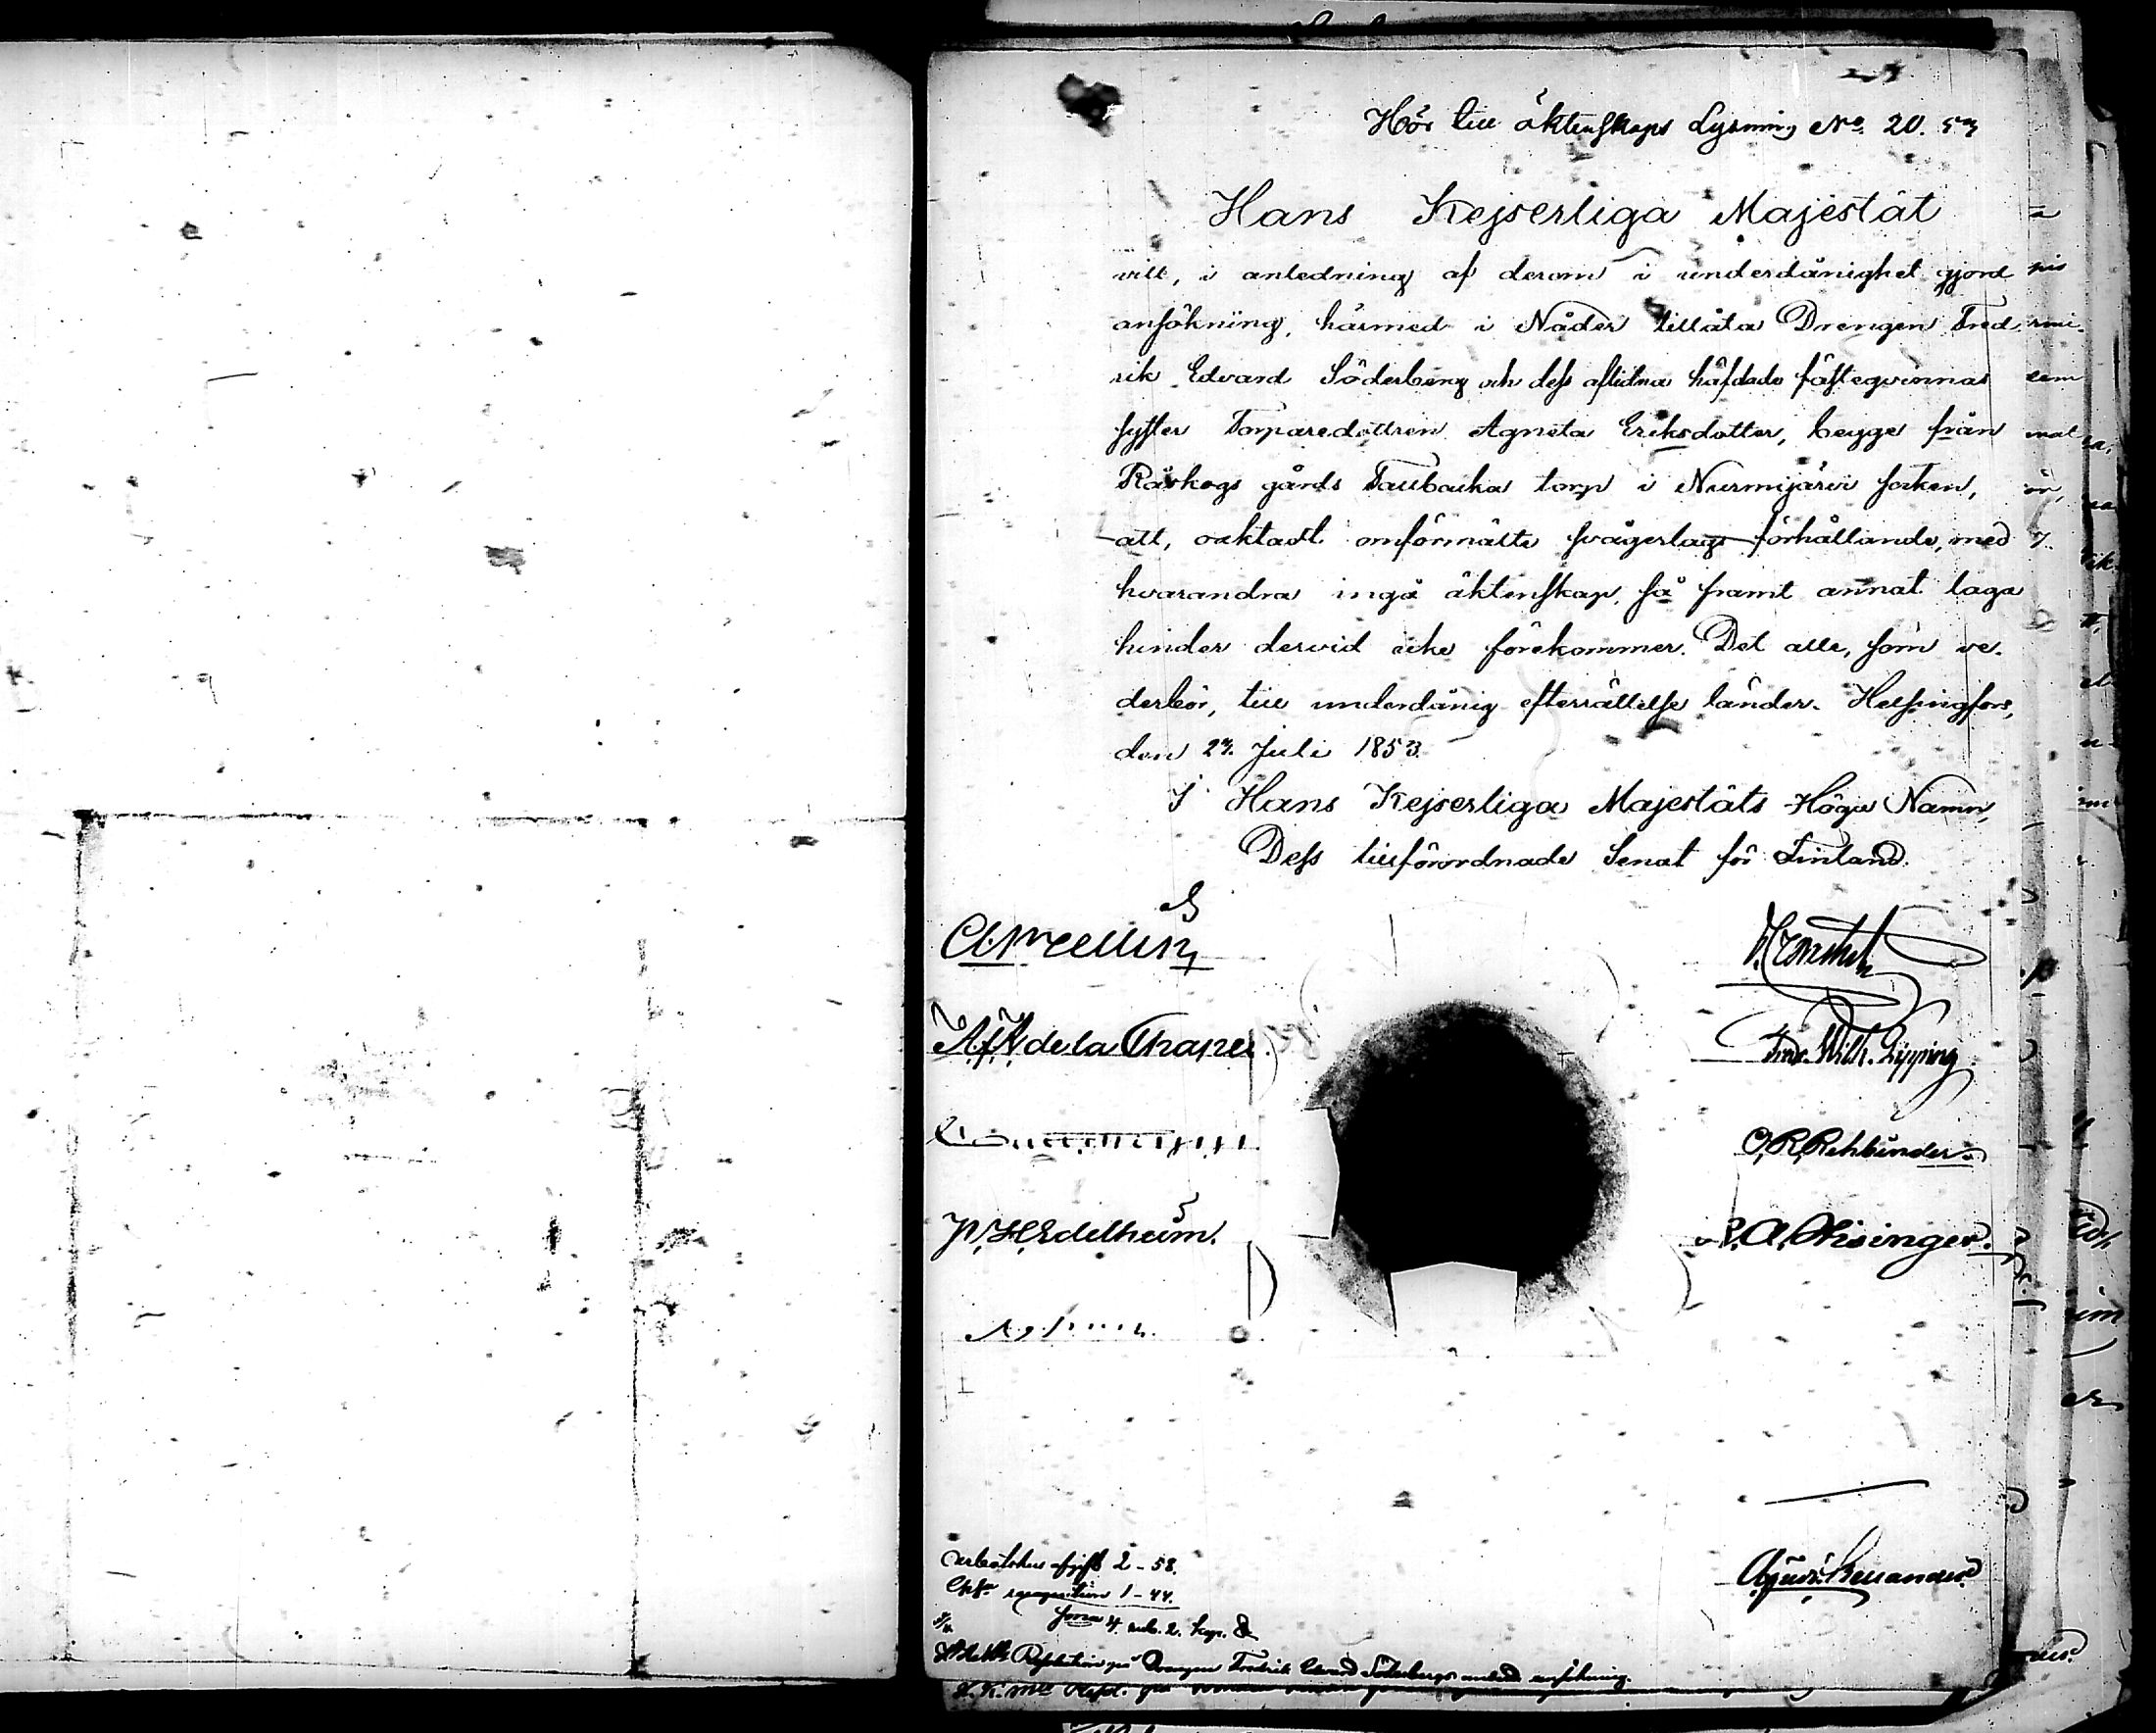 Hör till äktenskaps Lysning No. 20. 53
Hans Kejserliga Majestät
vill, i anledning af derom i underdånighet gjord
ansökning, härmed i Nåder tillåta Drengen Fred
rik Edvard Söderberg och dess aflidna häfdade fästeqvinnas
syster Torparedottren Agneta Eriksdotter, begge från
Räskogs gårds Taubacka torp i Nurmijärvi socken,
att, oaktadt omförmälte svågerlags förhållande, med
hvarandra ingå äktenskap, så framt annat laga
hinder dervid icke förekommer. Det alle, som ve-
derbör, till underdånig efterrättelse länder. Helsingfors,
den 27. Juli 1853.
I Hans Kejserliga Majestäts Höga Namn,
Dess tillförordnade Senat för Finland.
A. f. A. de la Chapelle.
Fredr. Wilh. Pipping
O. R. Rehbinder.
P. H. Edelheim.
A. Hisinger.
Arbetshus afgift 2-58.
Chtæ recognition 1-44.
Sma 4 rub. 2. kop. Sr
Resolution på Drengen Fredrik Edvard Söderbergs underd. ansökning.